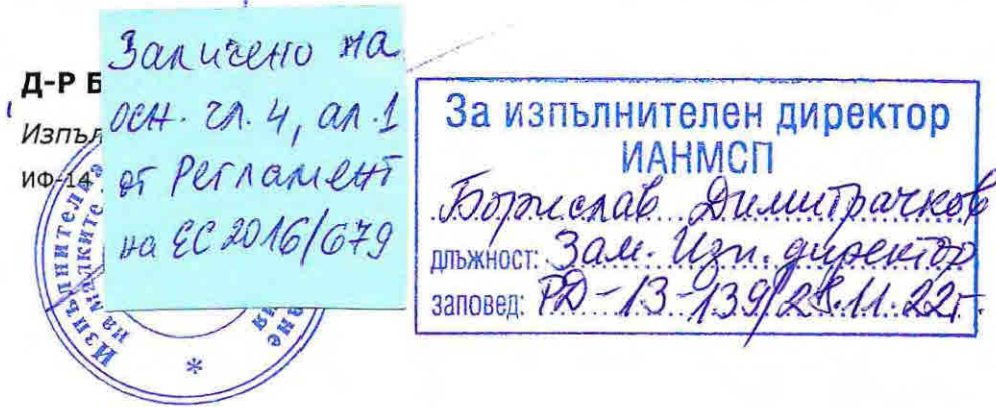 Д-Р Б
Изпъл
ИФ-14
Заличено на
осн. чл. 4, ал. 1
от Регламент
на ЕС 2016/679
За изпълнителен директор
ИАНМСП
Борислав Димитрачков
длъжност: Зам. Изп. директор
заповед: РД-13-139/28.11.22г.
Изпълнителна
на малките
*